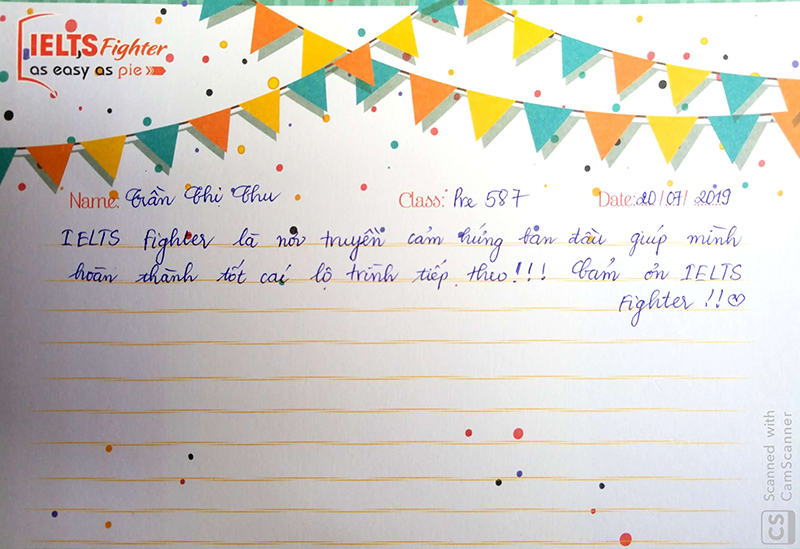 IELTS Fighter
as easy as pie
Name: Trần Thị Thu Class: Pre 587 Date: 20/07/2019
IELTS Fighter là nơi truyền cảm hứng ban đầu giúp mình
hoàn thành tốt các lộ trình tiếp theo!!! Cảm ơn IELTS
Fighter !!♡
CS Scanned with
CamScanner